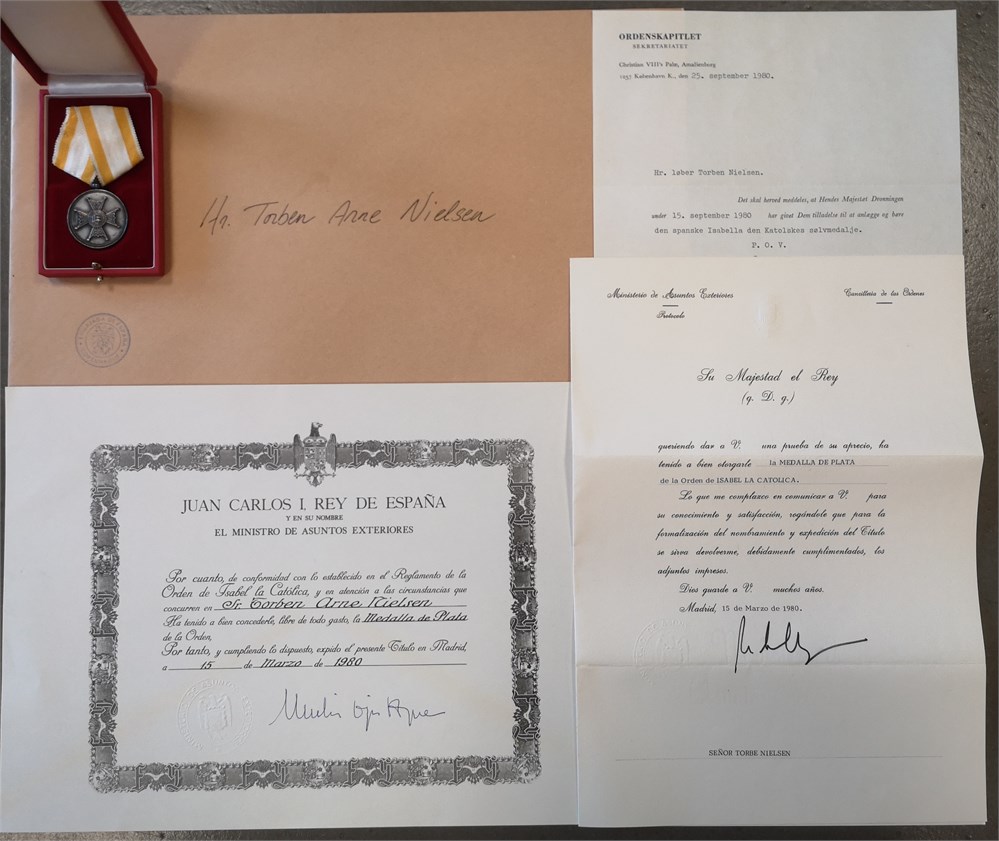 Hr. Torben Arne Nielsen
ORDENSKAPITLET
SEKRETARIATET
Christian VIII's Palæ, Amalienborg
1257 København K., den 25. september 1980.
Hr. løber Torben Nielsen.
Det skal herved meddeles, at Hendes Majestæt Dronningen
under 15. september 1980 har givet Dem tilladelse til at anlægge og bære
den spanske Isabella den Katolskes sølvmedalje.
P. O. V.
JUAN CARLOS I, REY DE ESPAÑA
Y EN SU NOMBRE
EL MINISTRO DE ASUNTOS EXTERIORES
Por cuanto, de conformidad con lo establecido en el Reglamento de la
Orden de Isabel la Católica, y en atención a las circunstancias que
concurren en Sr. Torben Arne Nielsen
Ha tenido a bien concederle, libre de todo gasto, la Medalla de Plata
de la Orden,
Por tanto, y cumpliendo lo dispuesto, expido el presente Título en Madrid,
a 15 de Marzo de 1980
Ministerio de Asuntos Exteriores
Protocolo
Cancillería de las Ordenes
Su Majestad el Rey
(q. D. g.)
queriendo dar a V. una prueba de su aprecio, ha
tenido a bien otorgarle la MEDALLA DE PLATA
de la Orden de ISABEL LA CATOLICA.
Lo que me complazco en comunicar a V. para
su conocimiento y satisfacción, rogándole que para la
formalización del nombramiento y expedición del Título
se sirva devolverme, debidamente cumplimentados, los
adjuntos impresos.
Dios guarde a V. muchos años.
Madrid, 15 de Marzo de 1980.
SEÑOR TORBE NIELSEN